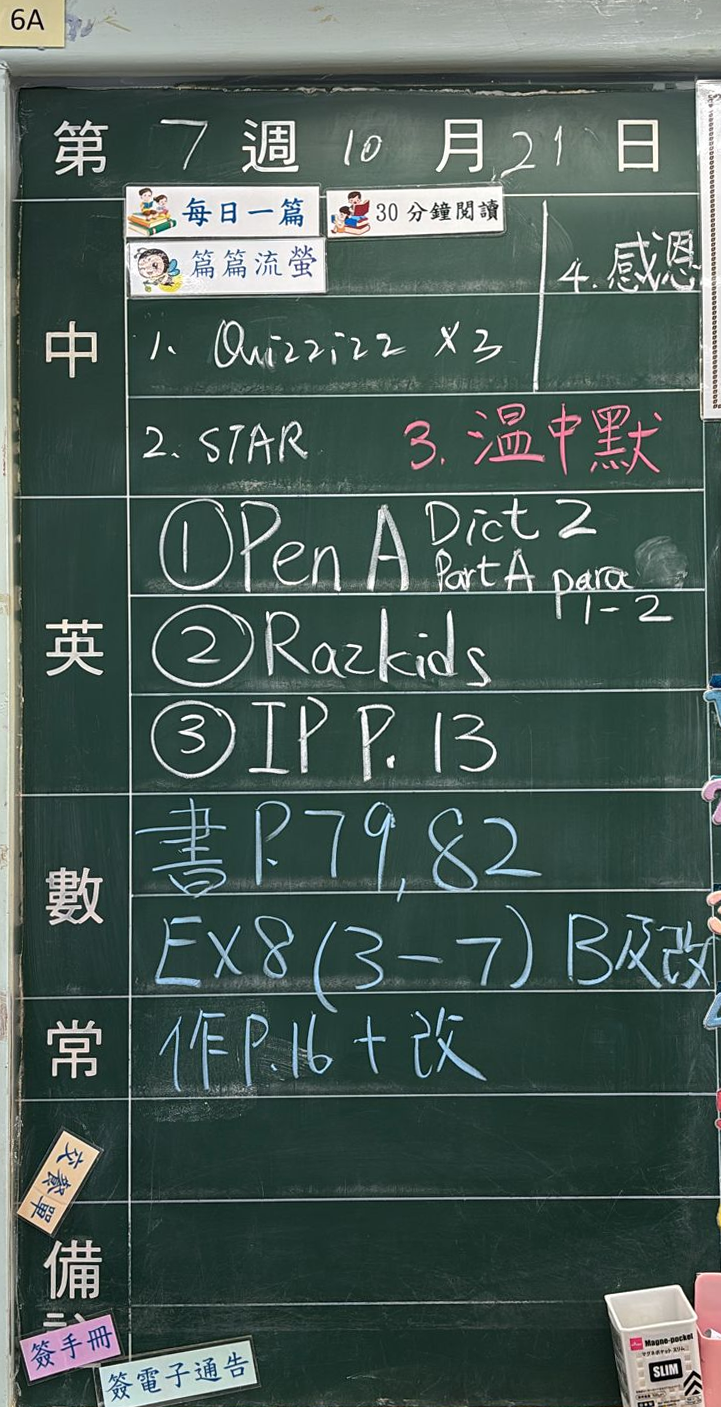 6A
第 7 週 10 月 21 日
每日一篇 30分鐘閱讀
篇篇流螢
4. 感恩
中
1. Quizzizz ×3
2. STAR 3. 溫中默
英
① Pen A Dict 2
Part A para
1-2
② Razkids
③ IP P. 13
數
書 P.79, 82
EX8 (3-7) B及改
常
作P.16 + 改
交餐單
備
簽手冊
簽電子通告
Magne-pocket
マグネポケット スリム
SLIM